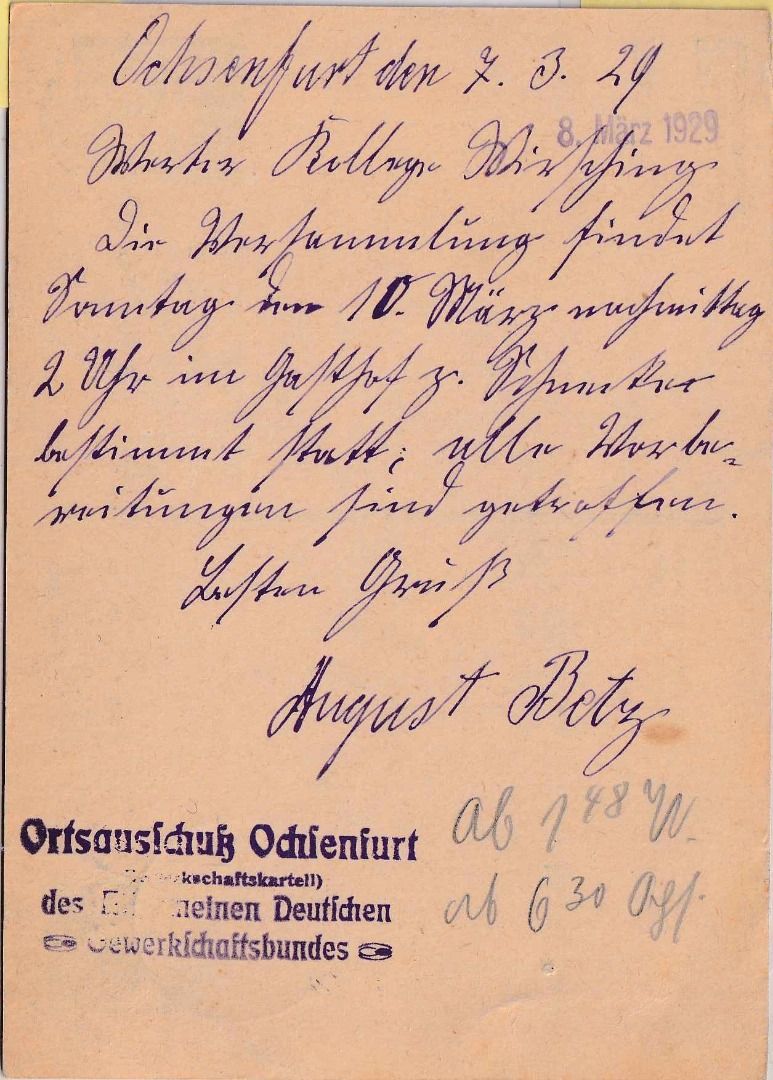 Ochsenfurt den 7. 3. 29
8. März 1929
Werter Kollege Wirsching
Die Versammlung findet
Sonntag den 10. März nachmittag
2 Uhr im Gasthof z. Schnecke
bestimmt statt; alle Vorbe-
reitungen sind getroffen.
Besten Gruß
August Betz
Ortsausschuß Ochsenfurt
kschaftskartell)
des meinen Deutschen
Gewerkschaftsbundes
ab 1 48 W.
ab 6 30 Ochs.